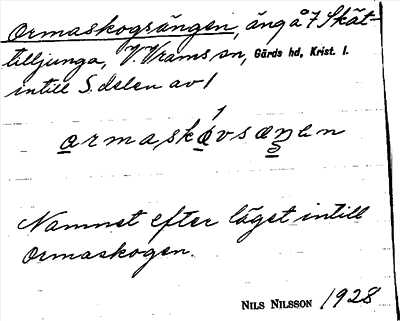 Ormaskogsängen, äng å 7 Skät-
tilljunga, V. Vrams sn, Gärds hd, Krist. l.
intill S. delen av 1
ormaskåvsäŋen
Namnet efter läget intill
Ormaskogen.
NILS NILSSON 1928